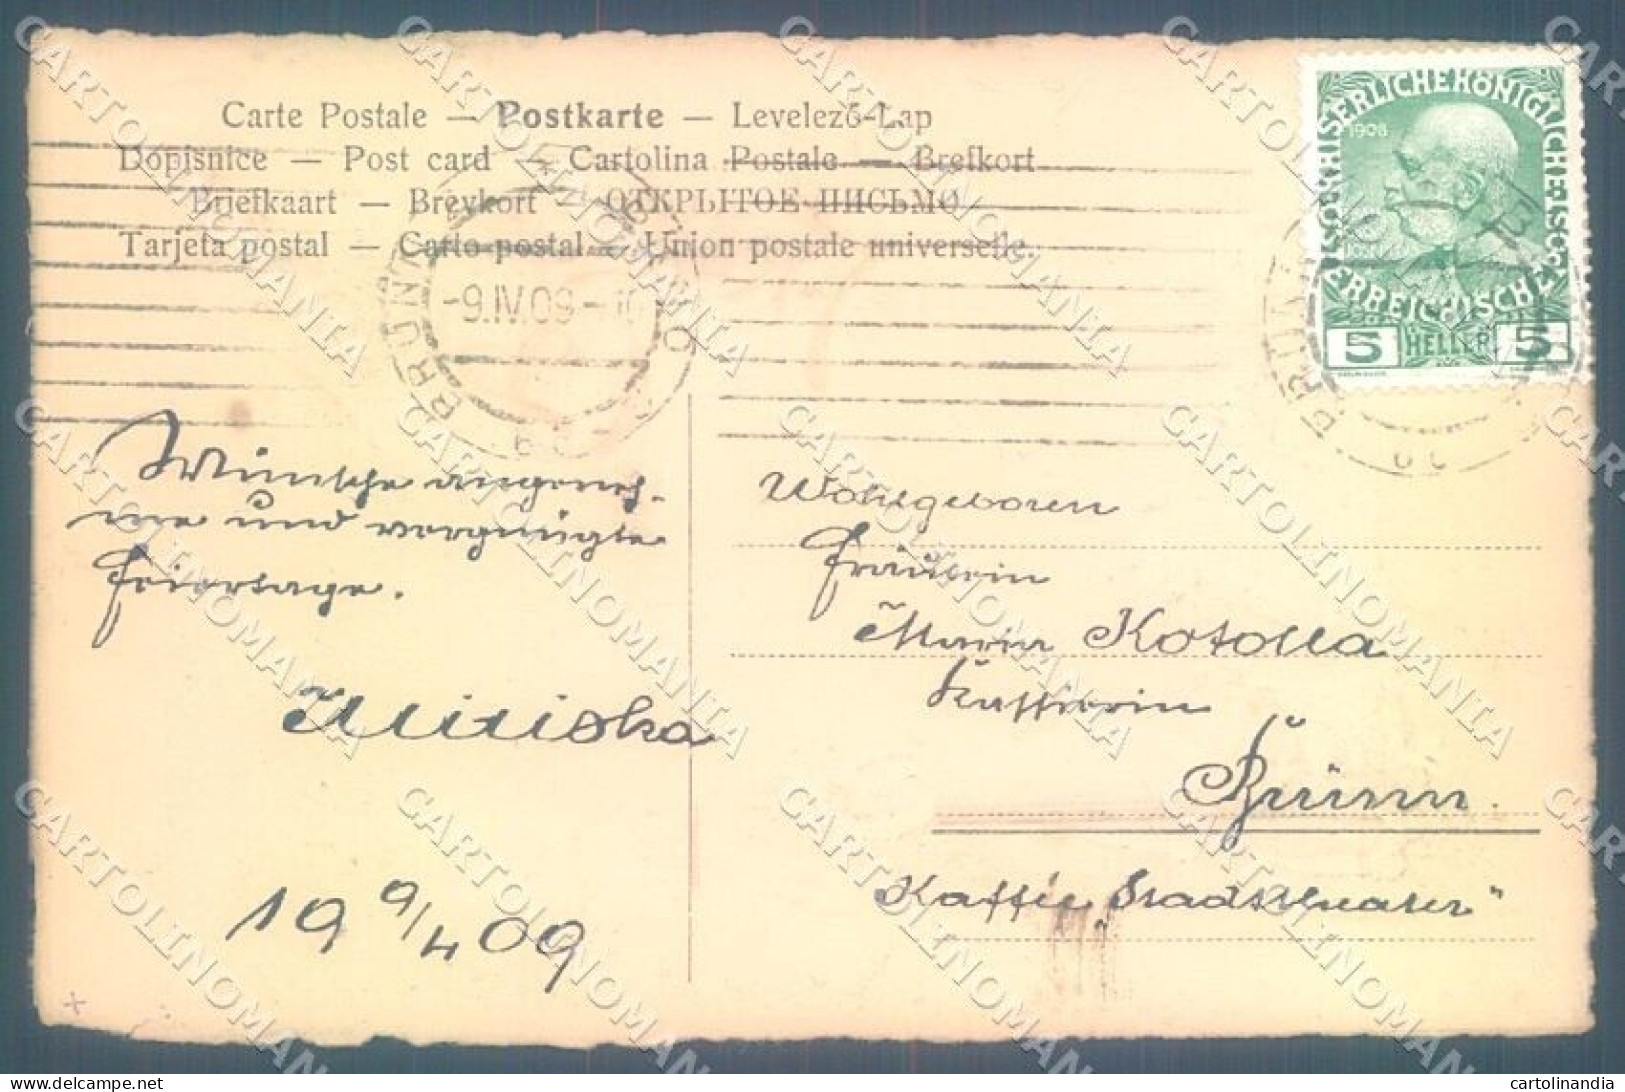 Carte Postale — Postkarte — Levelező-Lap
Dopisnice — Post card — Cartolina Postale — Brefkort
Briefkaart — Brevkort — ОТКРЫТОЕ ПИСЬМО
Tarjeta postal — Carto postal — Union postale universelle.
KAISERLICHE KÖNIGLICHE ÖSTERREICHISCHE
1908
5 HELLER 5
BRÜNN
-9.IV.09-
BRÜNN
Wünsche angeneh-
me und vergnügte
Feiertage.
19 9/4 09
Wohlgeboren
Fräulein
Maria Kotolla
Kassierin
Brünn.
Kaffée „Stadttheater“
CARTOLINOMANIA
cartolinandia